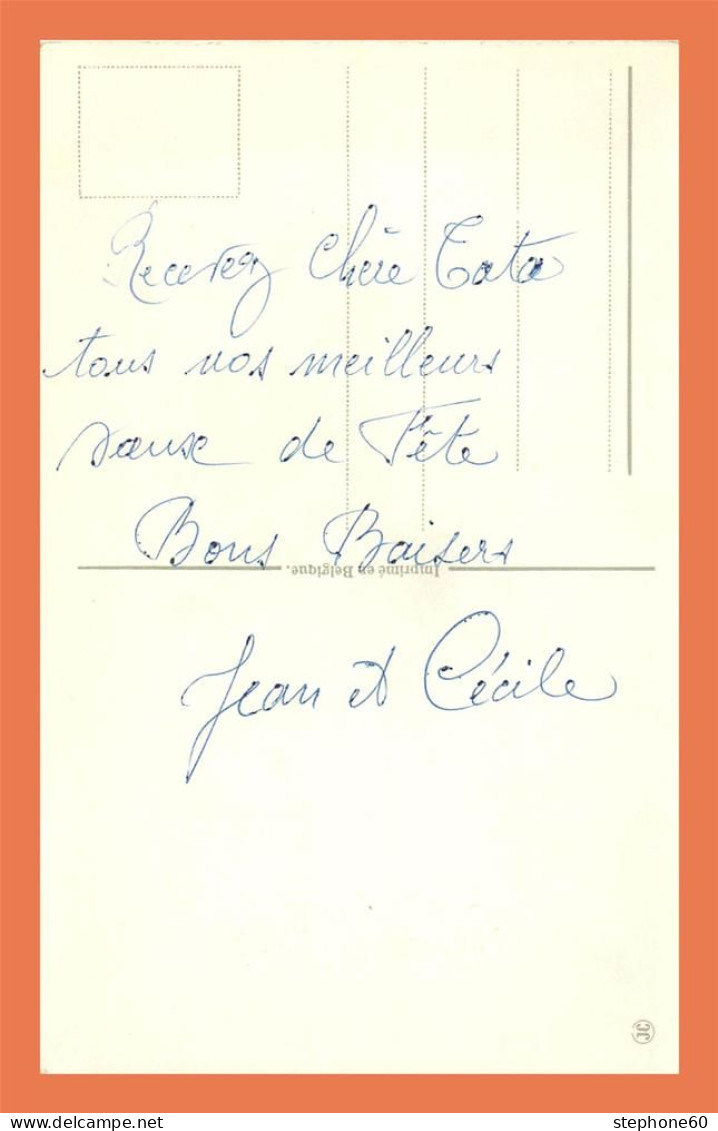 Recevez Chère Tata
tous nos meilleurs
vœux de Fête
Bons Baisers
Imprimé en Belgique.
Jean et Cécile
JC
stephone60